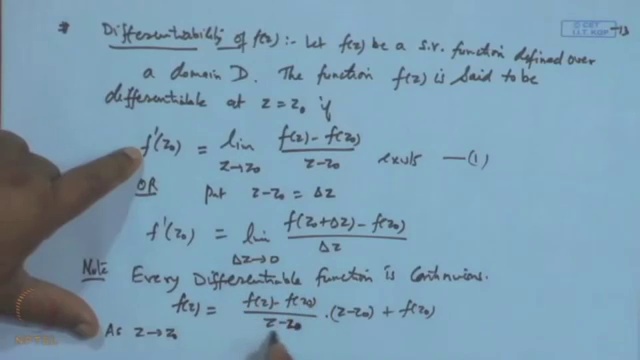 * Differentiability of f(z) :- Let f(z) be a s.v. function defined over
a domain D. The function f(z) is said to be
differentiable at z = z₀ if
f'(z₀) = lim z→z₀ (f(z) - f(z₀))/(z - z₀) exists —(1)
OR put z - z₀ = Δz
f'(z₀) = lim Δz→0 (f(z₀+Δz) - f(z₀))/Δz
Note Every Differentiable function is Continuous.
f(z) = (f(z) - f(z₀))/(z - z₀) · (z - z₀) + f(z₀)
As z → z₀
NPTEL